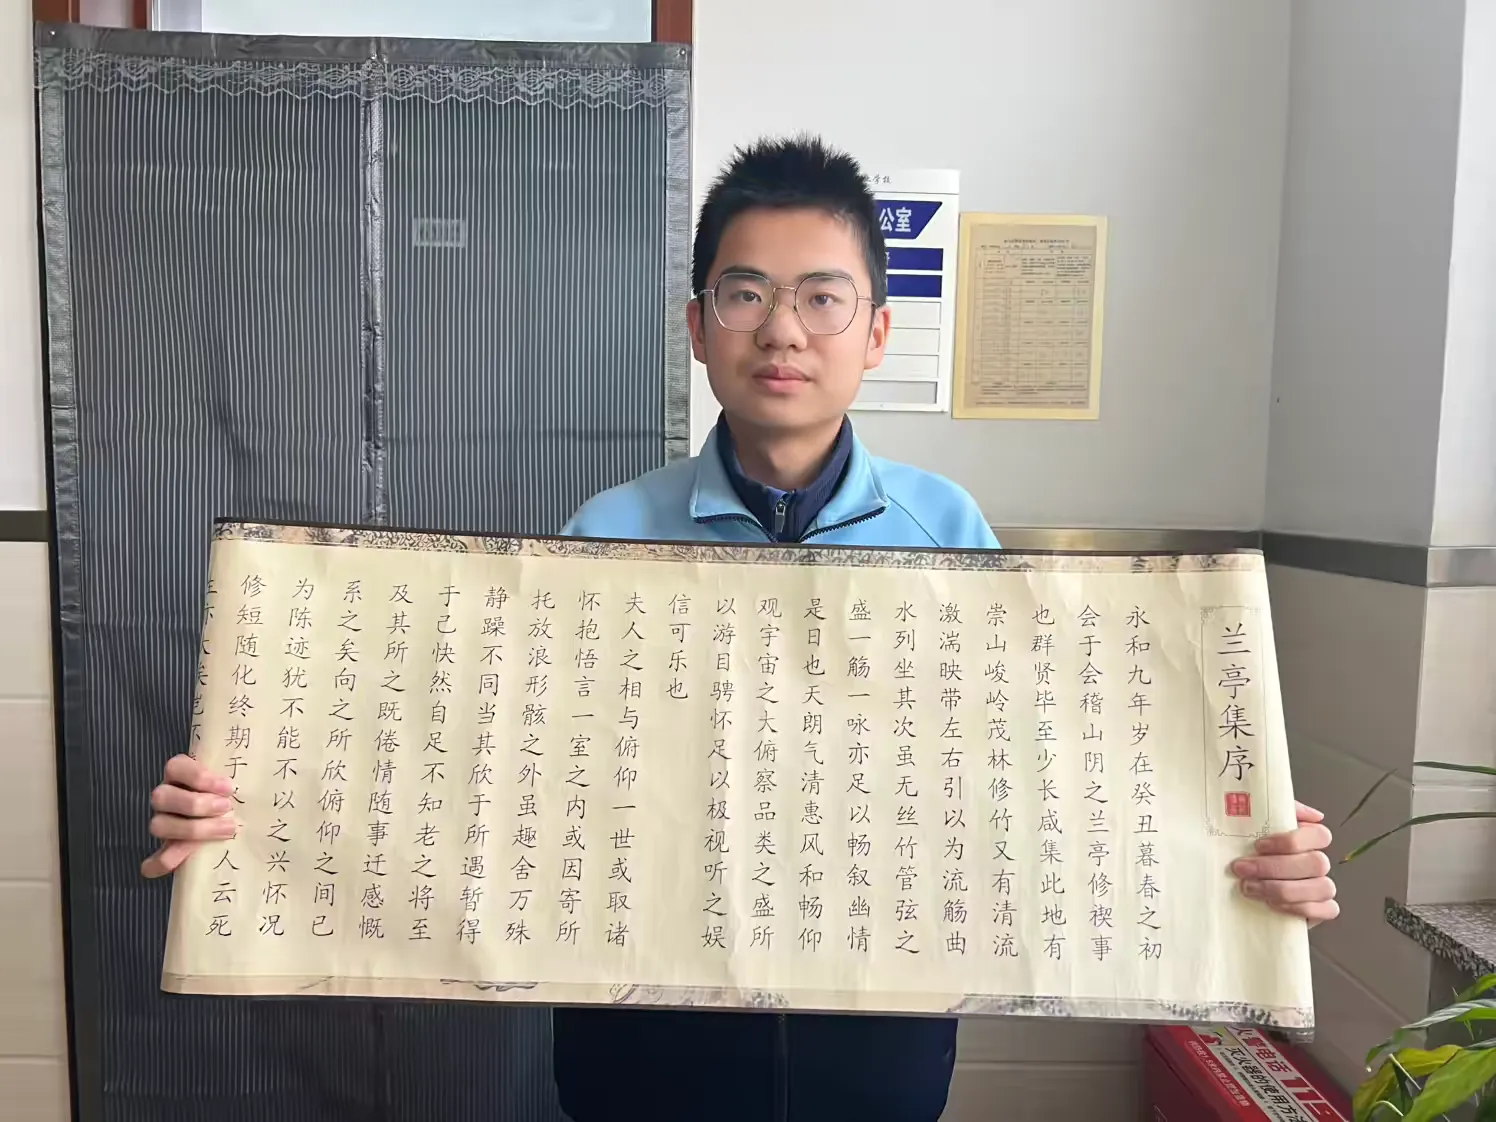 兰亭集序
永和九年岁在癸丑暮春之初
会于会稽山阴之兰亭修禊事
也群贤毕至少长咸集此地有
崇山峻岭茂林修竹又有清流
激湍映带左右引以为流觞曲
水列坐其次虽无丝竹管弦之
盛一觞一咏亦足以畅叙幽情
是日也天朗气清惠风和畅仰
观宇宙之大俯察品类之盛所
以游目骋怀足以极视听之娱
信可乐也
夫人之相与俯仰一世或取诸
怀抱悟言一室之内或因寄所
托放浪形骸之外虽趣舍万殊
静躁不同当其欣于所遇暂得
于己快然自足不知老之将至
及其所之既倦情随事迁感慨
系之矣向之所欣俯仰之间已
为陈迹犹不能不以之兴怀况
修短随化终期于人云死
学校
公室
火警电话11
灭火器的使用方法